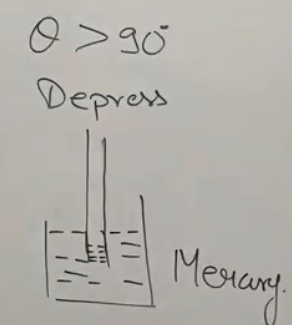 θ > 90°
Depress
Mercury.